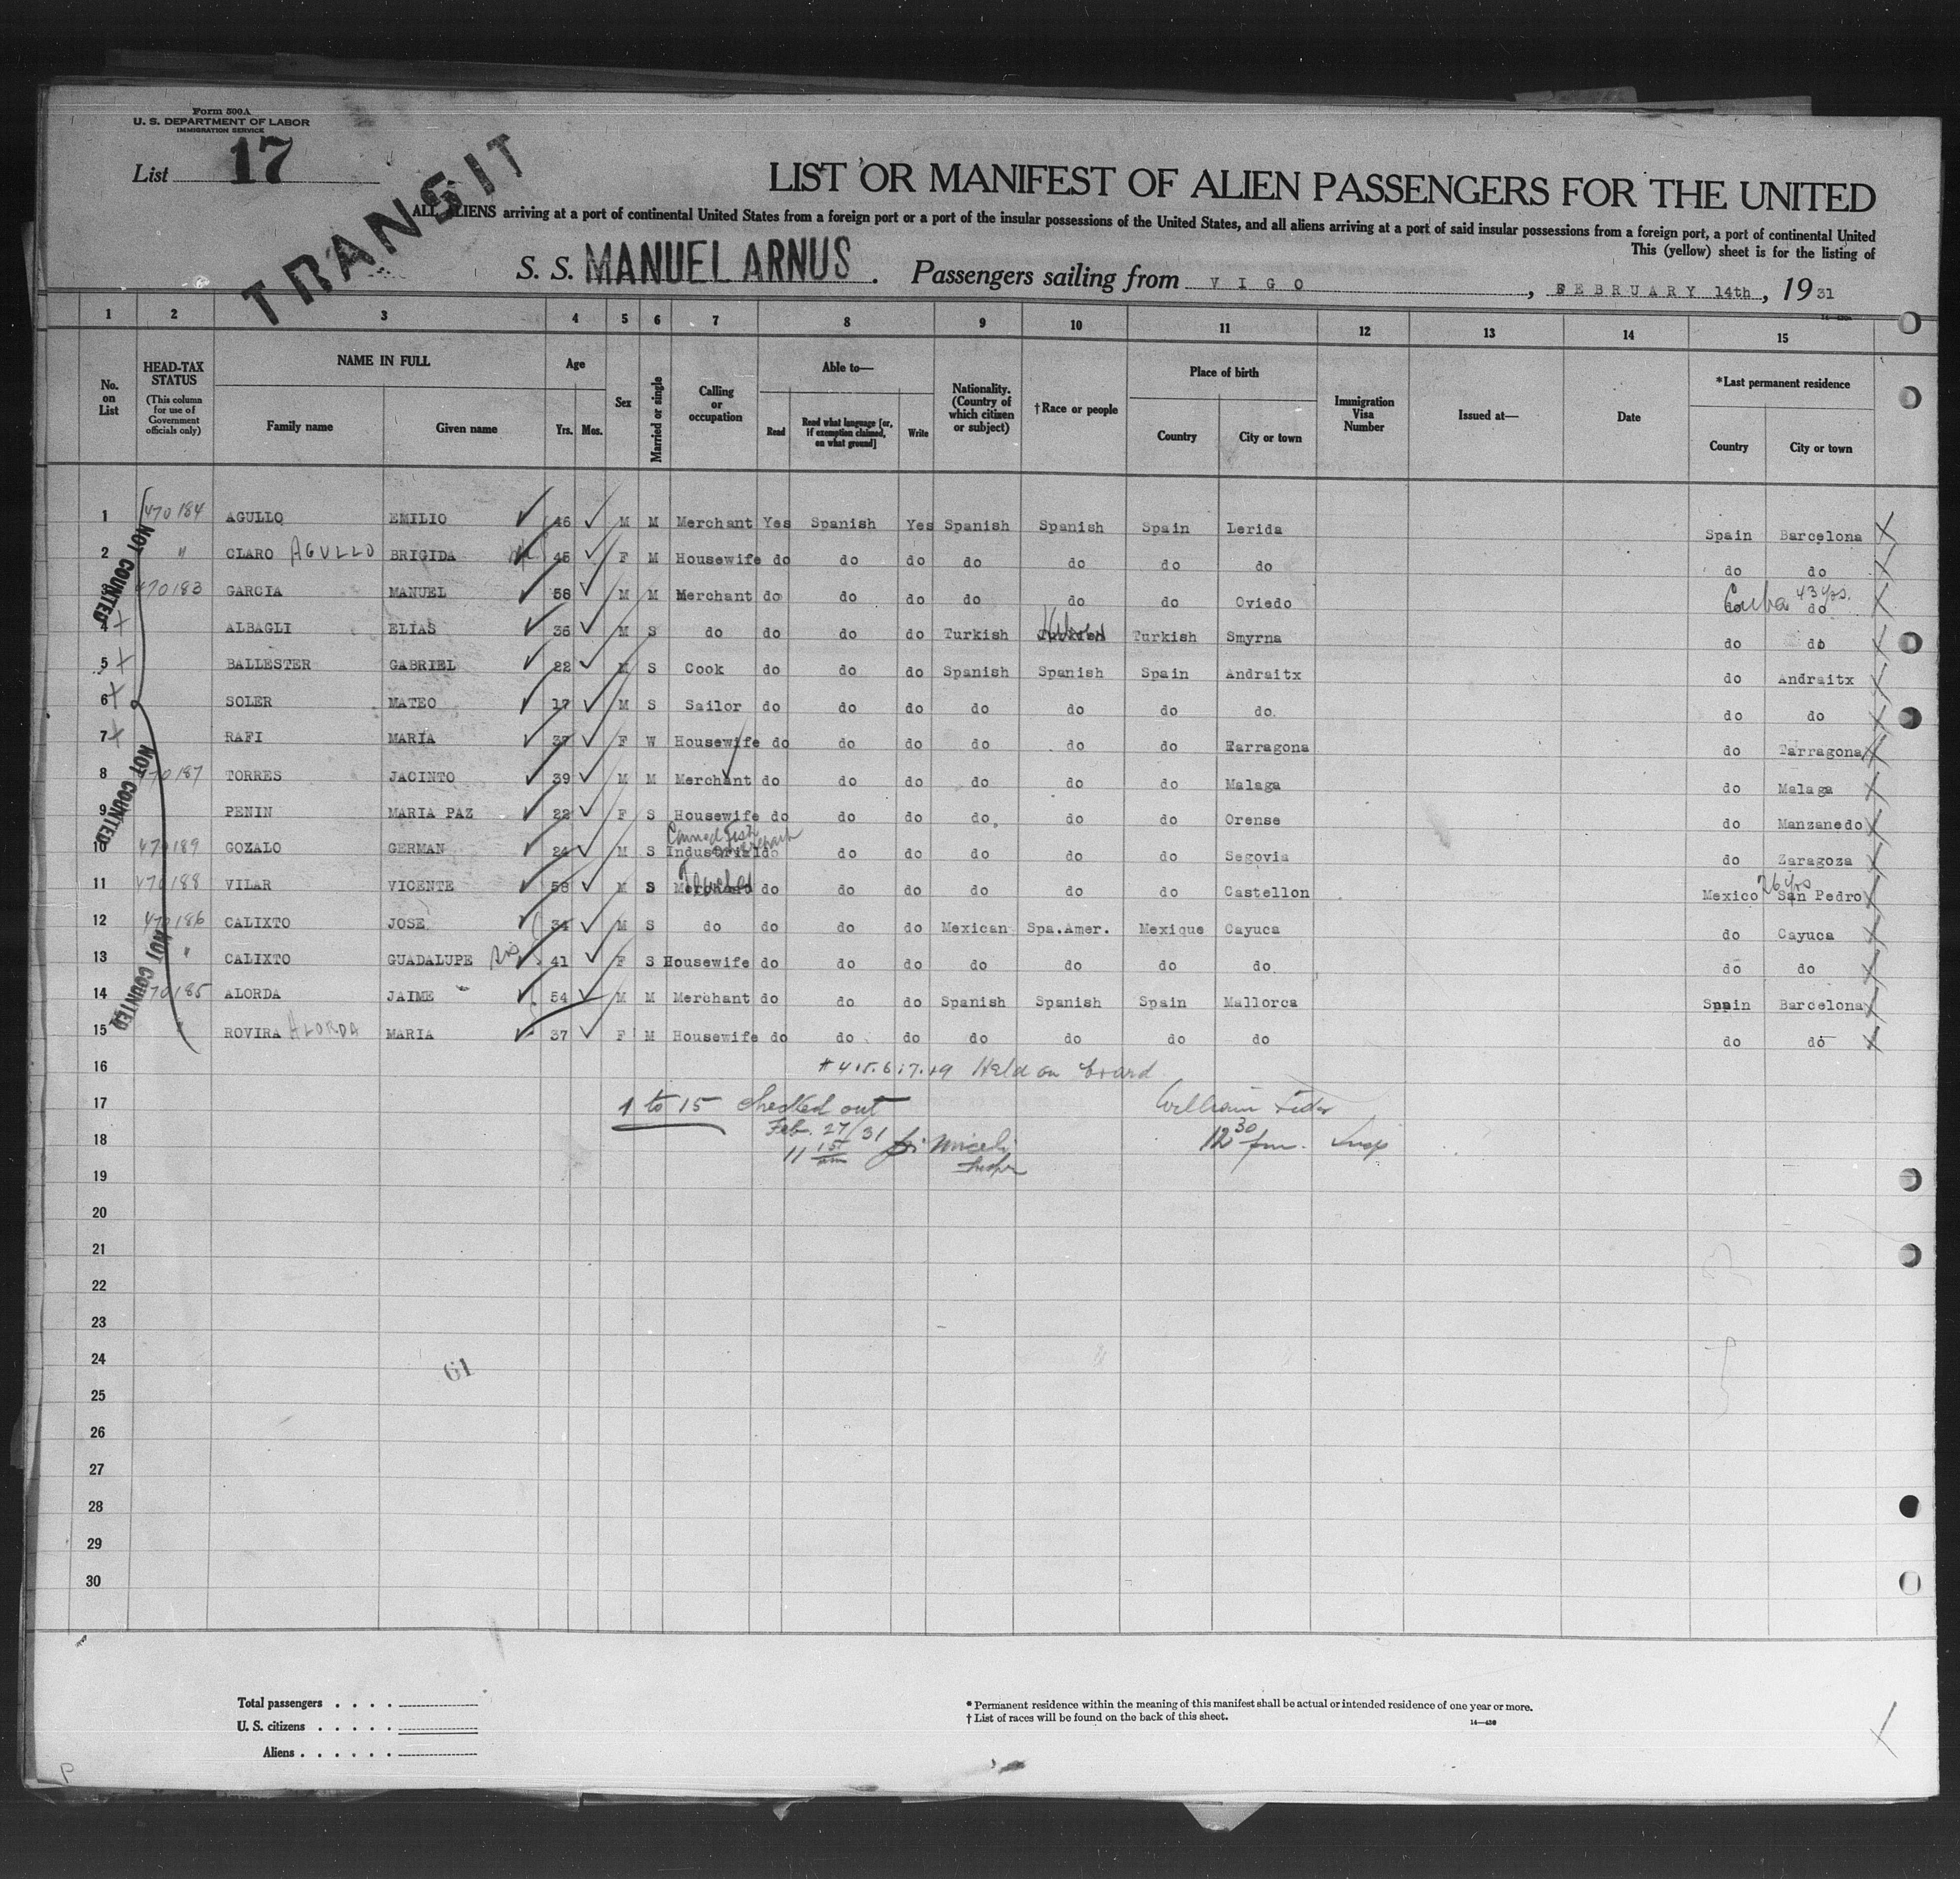 Form 500A
U. S. DEPARTMENT OF LABOR
IMMIGRATION SERVICE
List 17
TRANSIT
LIST OR MANIFEST OF ALIEN PASSENGERS FOR THE UNITED
ALL ALIENS arriving at a port of continental United States from a foreign port or a port of the insular possessions of the United States, and all aliens arriving at a port of said insular possessions from a foreign port, a port of continental United
This (yellow) sheet is for the listing of
S. S. MANUEL ARNUS. Passengers sailing from VIGO, FEBRUARY 14th, 1931
1 2 3 4 5 6 7 8 9 10 11 12 13 14 15
No. on List
HEAD-TAX STATUS
(This column for use of Government officials only)
NAME IN FULL
Family name Given name
Age
Yrs. Mos.
Sex
Married or single
Calling or occupation
Able to—
Read Read what language [or, if exemption claimed, on what ground] Write
Nationality. (Country of which citizen or subject)
†Race or people
Place of birth
Country City or town
Immigration Visa Number
Issued at—
Date
*Last permanent residence
Country City or town
1 470184 AGULLO EMILIO 46 M M Merchant Yes Spanish Yes Spanish Spanish Spain Lerida Spain Barcelona
2 " CLARO AGULLO BRIGIDA 45 F M Housewife do do do do do do do do do
3 470183 GARCIA MANUEL 56 M M Merchant do do do do do do Oviedo do Cuba 43 yrs. do
4 ALBAGLI ELIAS 36 M S do do do do Turkish Turkish Smyrna do do
5 BALLESTER GABRIEL 22 M S Cook do do do Spanish Spanish Spain Andraitx do Andraitx
6 SOLER MATEO 17 M S Sailor do do do do do do do. do do
7 RAFI MARIA 37 F W Housewife do do do do do do Rarragona do Tarragona
8 470187 TORRES JACINTO 39 M M Merchant do do do do do do Malaga do Malaga
9 PENIN MARIA PAZ 22 F S Housewife do do do do. do do Orense do Manzanedo
Canned Fish
10 470189 GOZALO GERMAN 24 M S Industrial do do do do do do Segovia do Zaragoza
11 470188 VILAR VICENTE 58 M S Merchant do do do do do do Castellon Mexico 26 yrs San Pedro
12 470186 CALIXTO JOSE 34 M S do do do do Mexican Spa.Amer. Mexique Cayuca do Cayuca
13 " CALIXTO GUADALUPE sis 41 F S Housewife do do do do do do do. do do
14 470185 ALORDA JAIME 54 M M Merchant do do do Spanish Spanish Spain Mallorca Spain Barcelona
15 " ROVIRA ALORDA MARIA 37 F M Housewife do do do do do do do do do
NOT COUNTED
NOT COUNTED
NOT COUNTED
16 # 4.5.6.7.+9 Held on board
17 1 to 15 checked out William
18 Feb. 27/31 12 30 pm. Insp
11 15 am Miceli
19
20
21
22
23
24
61
25
26
27
28
29
30
Total passengers . . . .
U. S. citizens . . . . .
Aliens . . . . . .
* Permanent residence within the meaning of this manifest shall be actual or intended residence of one year or more.
† List of races will be found on the back of this sheet.
14—430
P